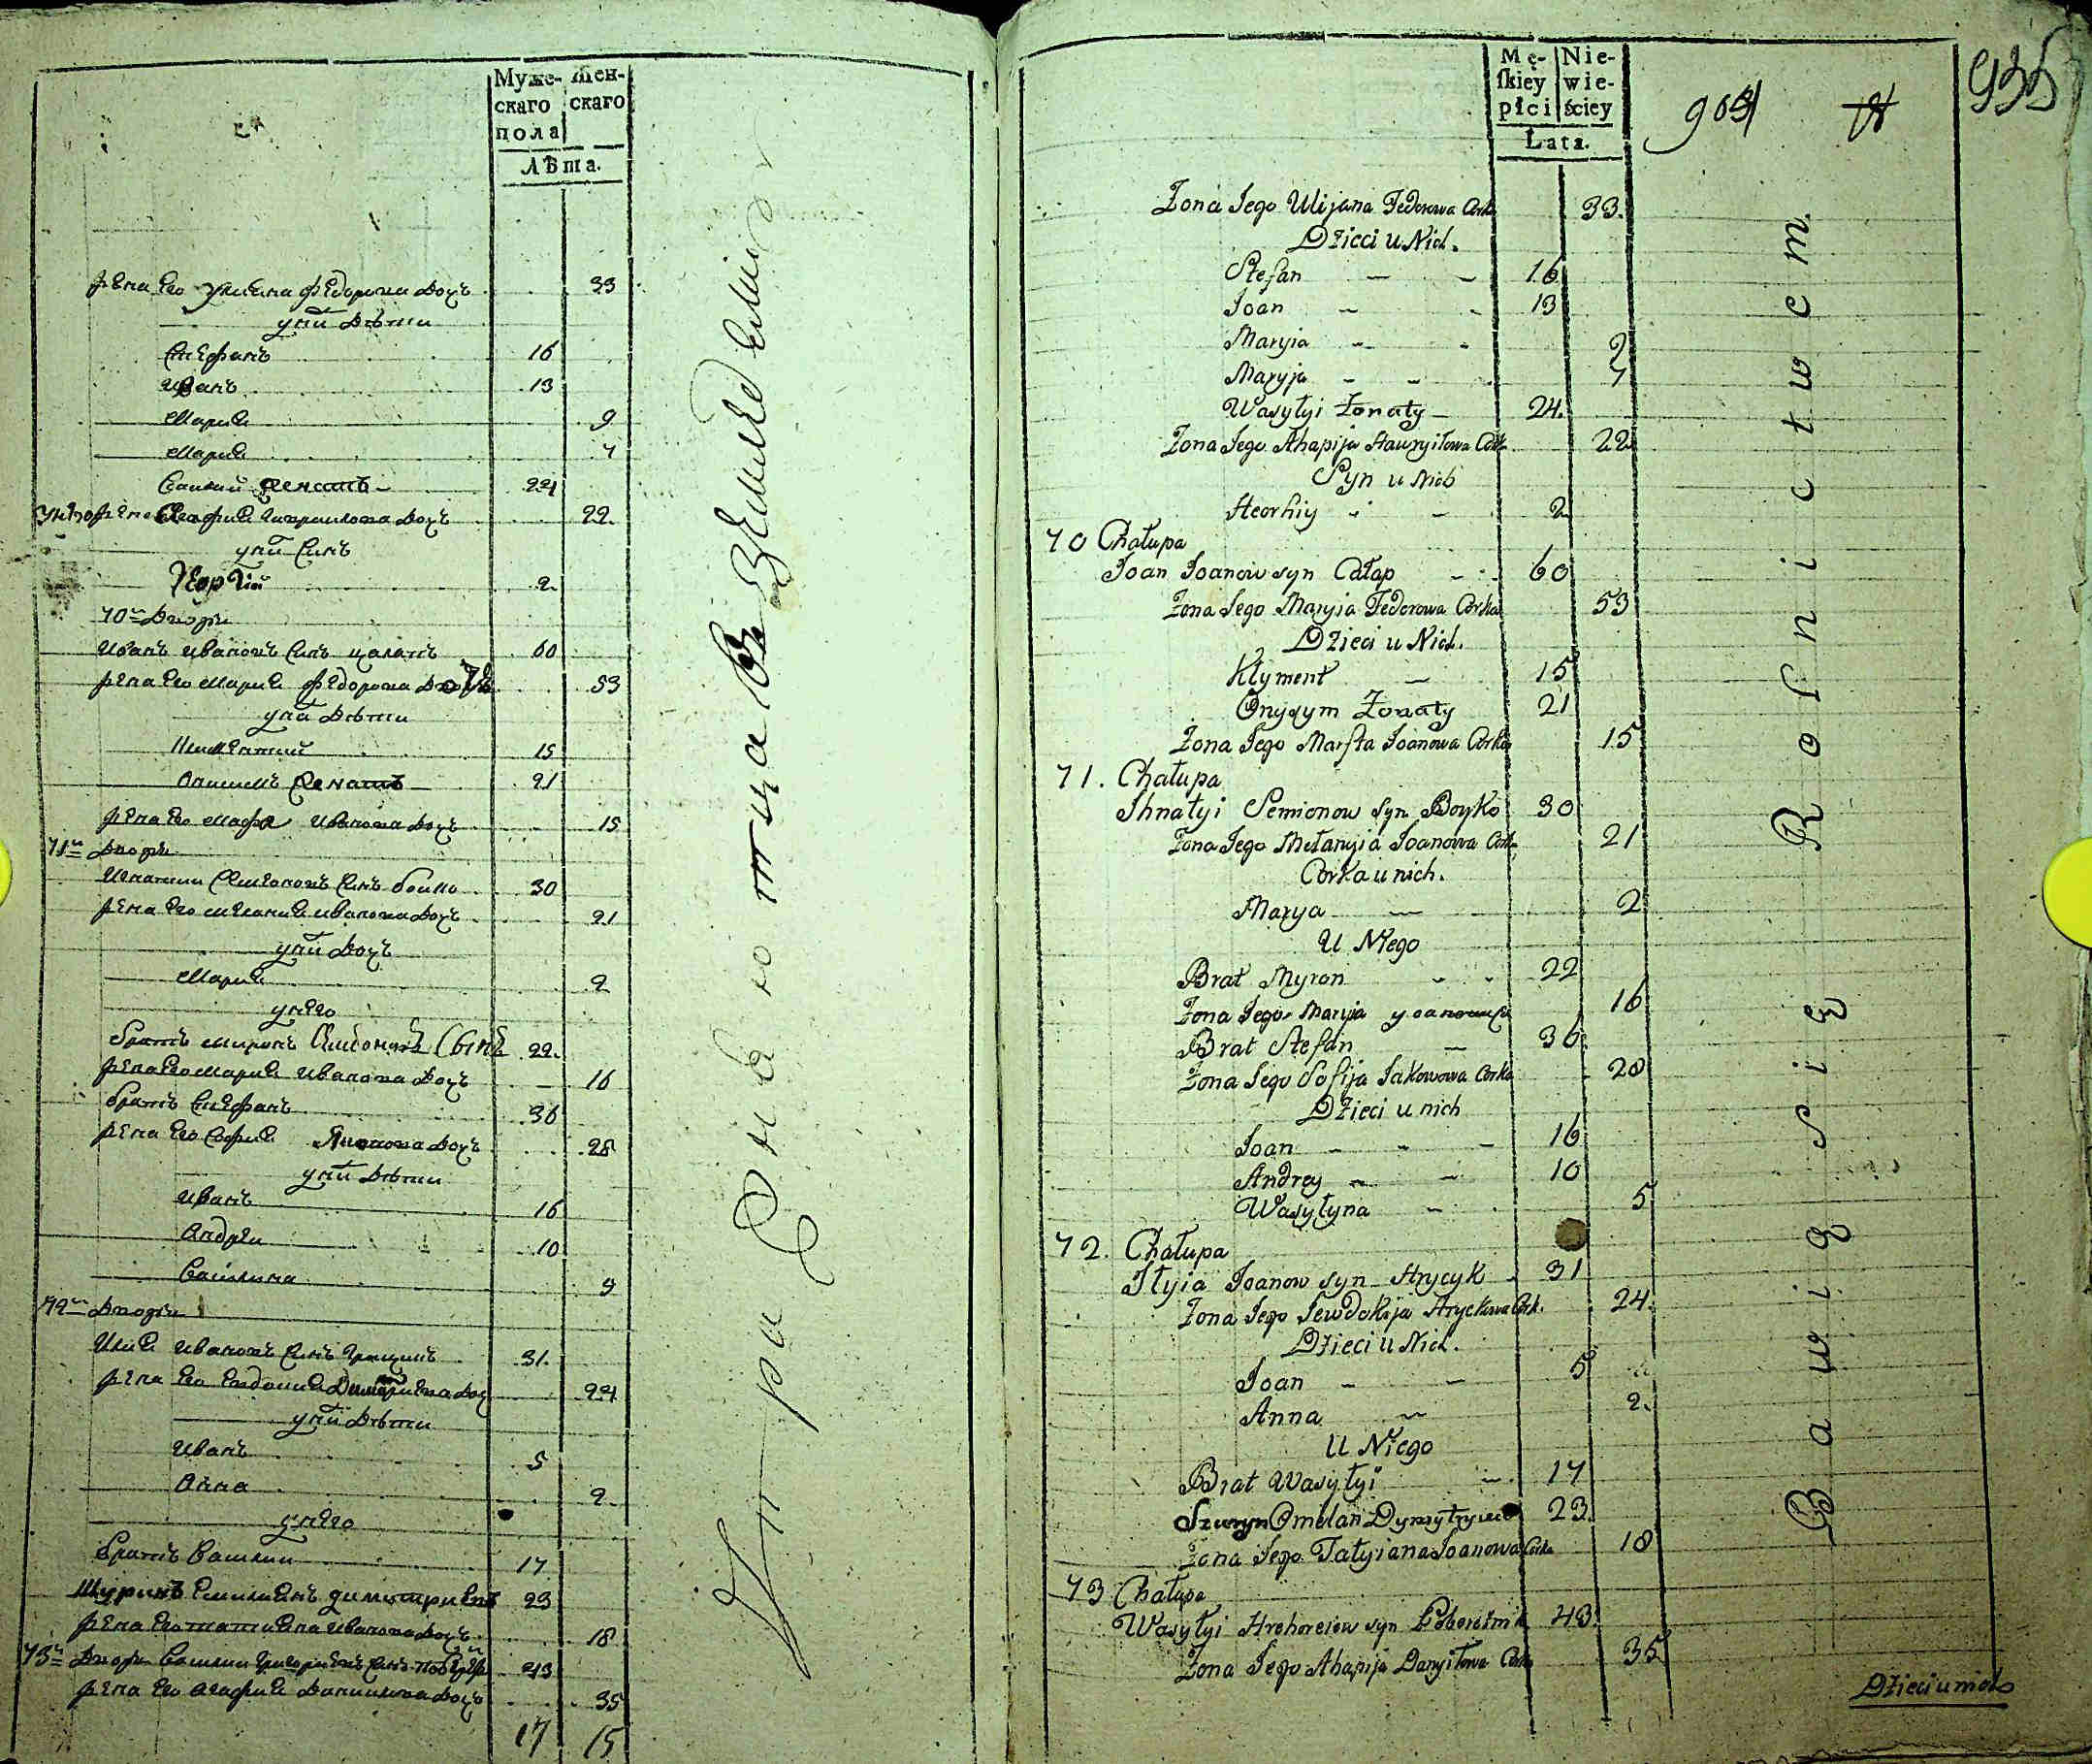 Муже-
скаго
пола
Жен-
скаго
Лѣта.
жена его Улияна Федорова дочь 33
у них дѣти
Стефанъ 16
Иванъ 13
Мария 9
Мария 7
Василий женатъ 24
жена Агафия Гавриилова дочь 22
у них синъ
Георгий 2
70 двор
Иванъ Ивановъ синъ Цалапъ 60
жена его Мария Федорова дочь 53
у них дѣти
Климентий 15
Онисимъ женатъ 21
жена его Марфа Иванова дочь 15
71 двор
Игнатий Семионовъ синъ Бойко 30
жена его Мелания Иванова дочь 21
у них дочь
Мария 2
у него
братъ Миронъ Симионовъ Сынъ 22
жена его Мария Иванова дочь 16
братъ Стефанъ 36
жена его София Якимова дочь 28
у них дѣти
Иванъ 16
Андрей 10
Василина 5
72 двор
Илия Ивановъ синъ Грицикъ 31
жена его Евдокия Димитриева доч 24
у них дѣти
Иванъ 5
Анна 2
у него
братъ Василий 17
Шуринъ Емилианъ Димитриевъ 23
жена его Татияна Иванова дочь 18
73 двор Василий Григориевъ синъ 43
жена его Агафия Даниилова дочь 35
17 15
При Онъ ютца въ Земледелии
Mę-
skiey
płci
Nie-
wie-
ściey
Lata.
904
935
Żona Jego Ulijana Fedorowa Corka 33
Dzieci u Nich.
Stefan 16
Joan 13
Maryia 9
Maryja 7
Wasyłyi Żonaty 24.
Żona Jego Ahapija Hawryiłowa Cork 22
Syn u Nich
Heorhiy 2
70 Chałupa
Joan Joanow syn Całap 60
Żona Jego Maryia Fedorowa Corka 53
Dzieci u Nich.
Kłyment 15
Onysym Żonaty 21
Żona Jego Marfta Joanowa Corka 15
71. Chałupa
Ihnatyi Semionow Syn Boyko 30
Żona Jego Mełanyia Joanowa Cork 21
Corka u nich.
Marya 2
U Niego
Brat Myron 22
Żona Jego Maryia 16
Brat Stefan 36
Żona Jego Sofija Jakowowa Corka 28
Dzieci u nich
Joan 16
Andrey 10
Wasyłyna 5
72. Chałupa
Iłyia Joanow syn Hrycyk 31
Żona Jego Jewdokija Hryckowa Cork. 24.
Dzieci u Nich.
Joan 5
Anna 2.
U Niego
Brat Wasyłyi 17
Szuryn Omelan Dymytryiew 23.
Żona Jego Tatyiana Joanowa Corka 18
73 Chałupa
Wasyłyi Hrehoreiow syn 43
Żona Jego Ahapija Danyiłowa Corka 35
Bawią się Rolnictwem.
Dzieci u nich